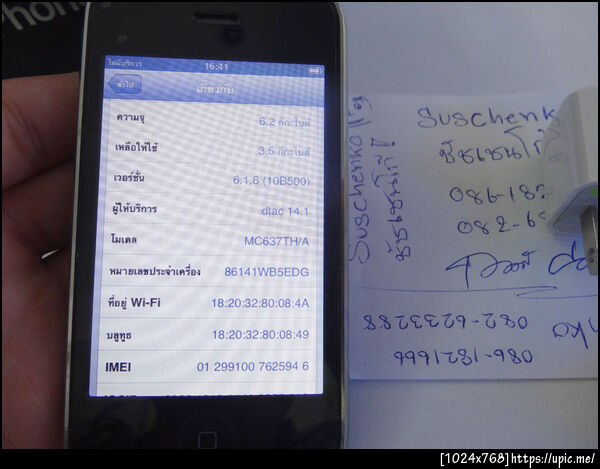 Phone
ไม่มีบริการ 16:41
ทั่วไป เกี่ยวกับ
ความจุ 6.2 กิกะไบต์
เหลือให้ใช้ 3.5 กิกะไบต์
เวอร์ชั่น 6.1.6 (10B500)
ผู้ให้บริการ dtac 14.1
โมเดล MC637TH/A
หมายเลขประจำเครื่อง 86141WB5EDG
ที่อยู่ Wi-Fi 18:20:32:80:08:4A
บลูทูธ 18:20:32:80:08:49
IMEI 01 299100 762594 6
Suschenko
ชัชเชนโก้
086-182
082-6
Suschenko
ชัชเชนโก้
082-6233288
086-1821666
[1024x768]https://upic.me/